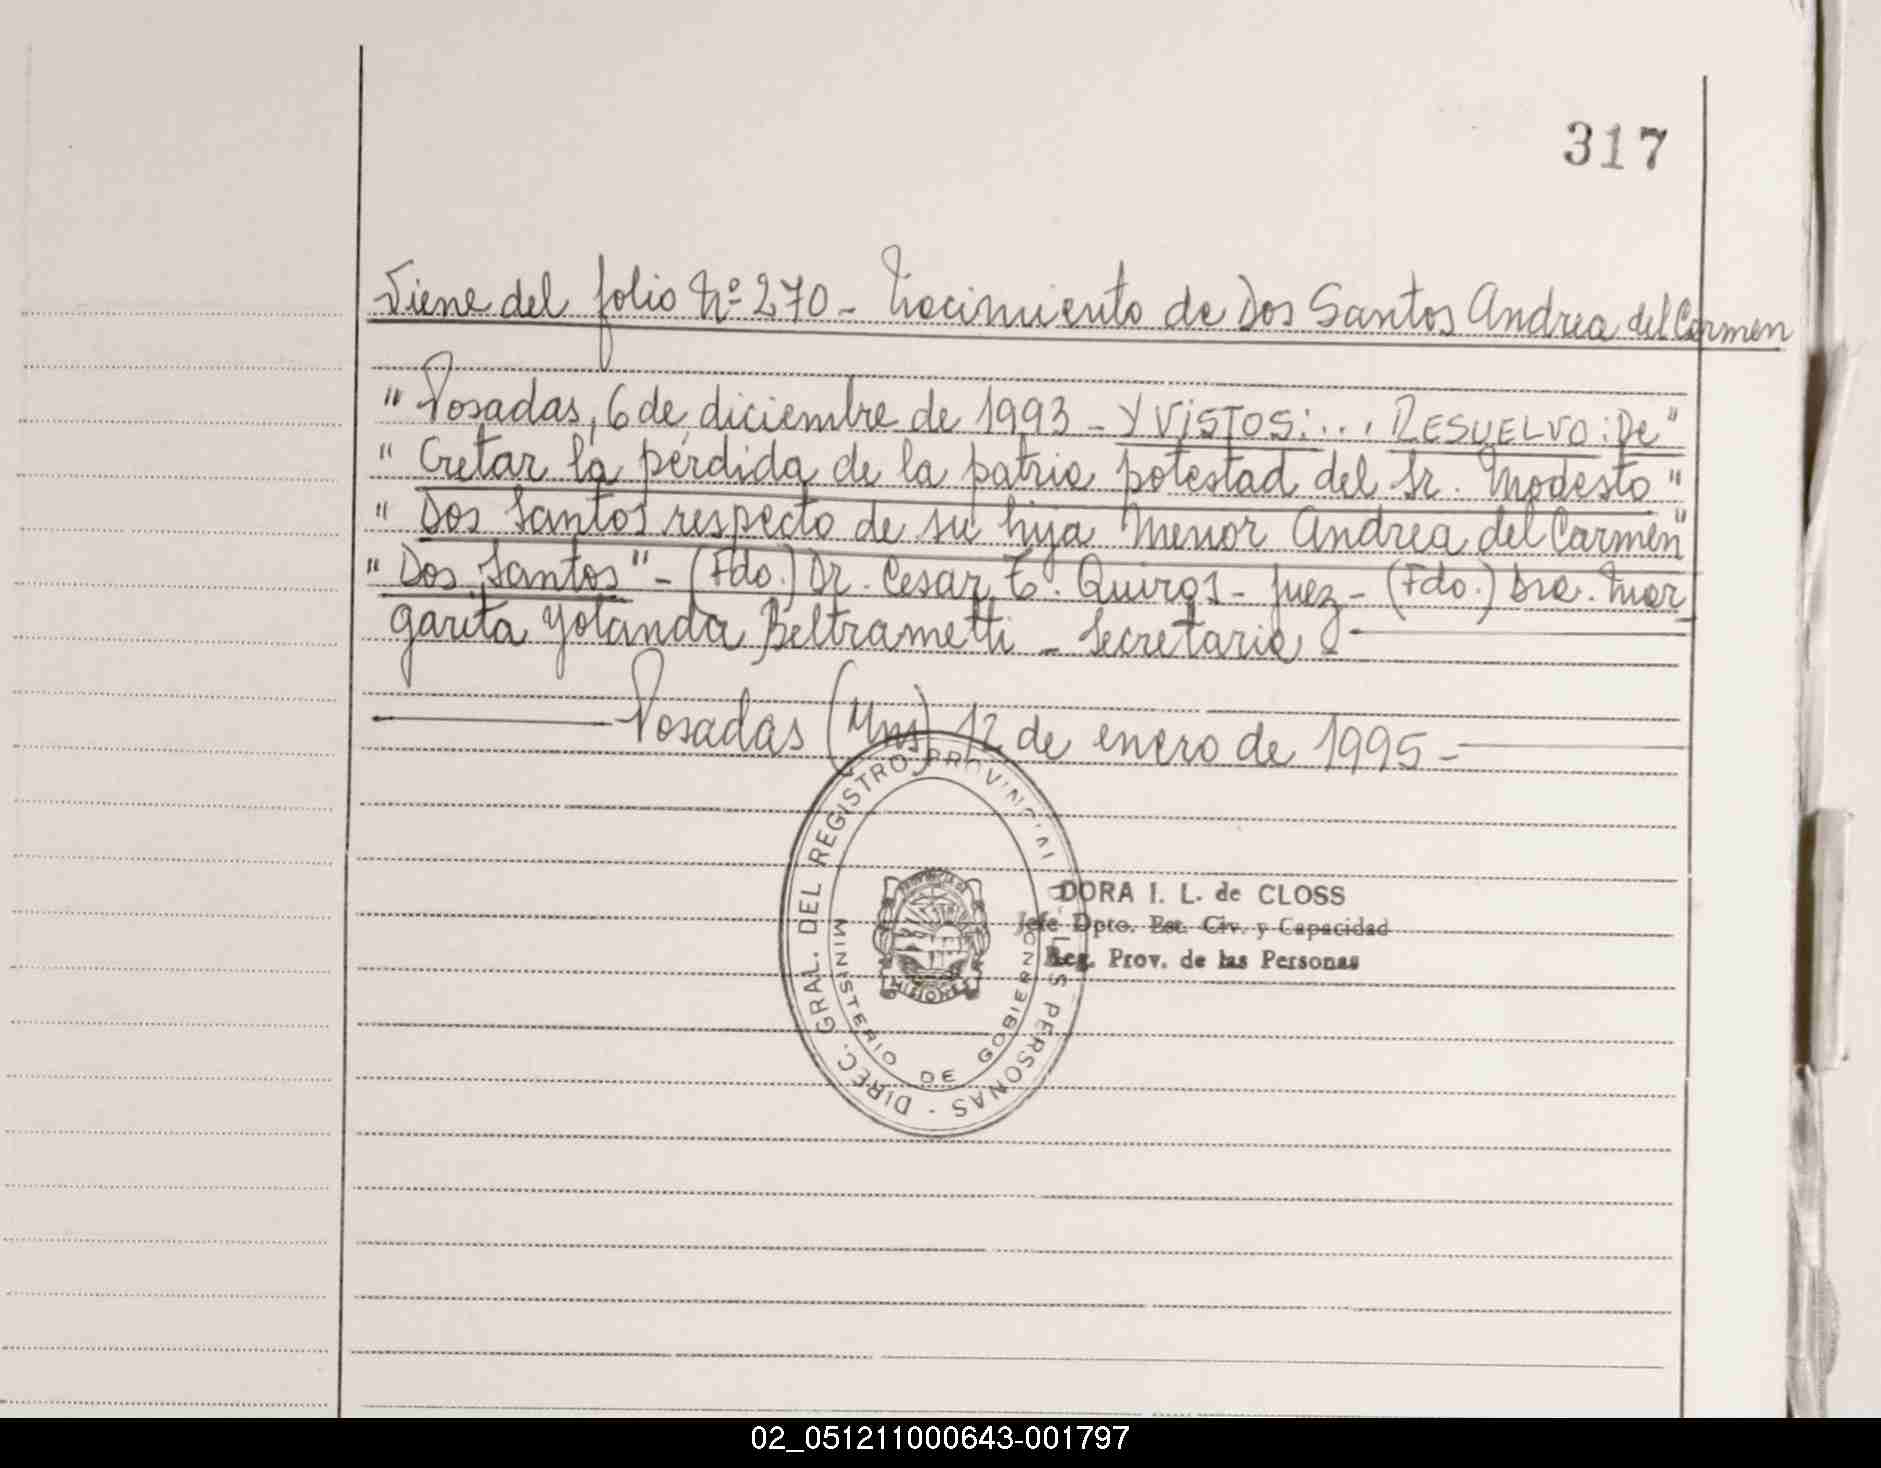 317
Viene del folio Nº 270 - Nacimiento de Dos Santos Andrea del Carmen
" Posadas, 6 de diciembre de 1993 - Y VISTOS: ... RESUELVO: De "
" Cretar la pérdida de la patria potestad del Sr. Modesto "
" Dos Santos respecto de su hija Menor Andrea del Carmen "
" Dos Santos " - (Fdo.) Dr. Cesar E. Quiros - Juez - (Fdo.) Dra. Mar
garita Yolanda Beltrametti - Secretaria -
Posadas (Mns) 12 de enero de 1995 -
DIREC. GRAL. DEL REGISTRO PROVINCIAL DE LAS PERSONAS -
MINISTERIO DE GOBIERNO
MISIONES
DORA I. L. de CLOSS
Jefe Dpto. Est. Civ. y Capacidad
Reg. Prov. de las Personas
02_051211000643-001797